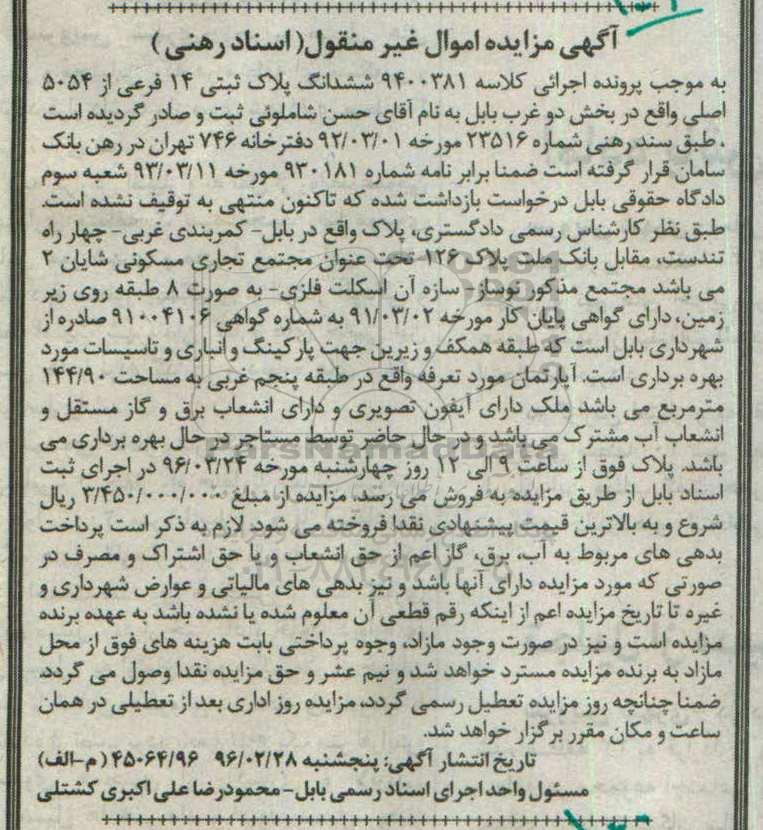 آگهی مزایده اموال غیر منقول( اسناد رهنی )
به موجب پرونده اجرائی کلاسه ۹۴۰۰۳۸۱ ششدانگ پلاک ثبتی ۱۴ فرعی از ۵۰۵۴
اصلی واقع در بخش دو غرب بابل به نام آقای حسن شاملوئی ثبت و صادر گردیده است
، طبق سند رهنی شماره ۲۳۵۱۶ مورخه ۹۲/۰۳/۰۱ دفترخانه ۷۴۶ تهران در رهن بانک
سامان قرار گرفته است ضمنا برابر نامه شماره ۹۳۰۱۸۱ مورخه ۹۳/۰۳/۱۱ شعبه سوم
دادگاه حقوقی بابل درخواست بازداشت شده که تاکنون منتهی به توقیف نشده است.
طبق نظر کارشناس رسمی دادگستری، پلاک واقع در بابل- کمربندی غربی- چهار راه
تندست، مقابل بانک ملت پلاک ۱۲۶- تحت عنوان مجتمع تجاری مسکونی شایان ۲
می باشد مجتمع مذکور نوساز- سازه آن اسکلت فلزی- به صورت ۸ طبقه روی زیر
زمین، دارای گواهی پایان کار مورخه ۹۱/۰۳/۰۲ به شماره گواهی ۹۱۰۰۴۱۰۶ صادره از
شهرداری بابل است که طبقه همکف و زیرین جهت پارکینگ و انباری و تاسیسات مورد
بهره برداری است. آپارتمان مورد تعرفه واقع در طبقه پنجم غربی به مساحت ۱۴۴/۹۰
مترمربع می باشد ملک دارای آیفون تصویری و دارای انشعاب برق و گاز مستقل و
انشعاب آب مشترک می باشد و در حال حاضر توسط مستاجر در حال بهره برداری می
باشد. پلاک فوق از ساعت ۹ الی ۱۲ روز چهارشنبه مورخه ۹۶/۰۳/۲۴ در اجرای ثبت
اسناد بابل از طریق مزایده به فروش می رسد، مزایده از مبلغ ۳/۴۵۰/۰۰۰/۰۰۰ ریال
شروع و به بالاترین قیمت پیشنهادی نقدا فروخته می شود. لازم به ذکر است پرداخت
بدهی های مربوط به آب، برق، گاز اعم از حق انشعاب و یا حق اشتراک و مصرف در
صورتی که مورد مزایده دارای آنها باشد و نیز بدهی های مالیاتی و عوارض شهرداری و
غیره تا تاریخ مزایده اعم از اینکه رقم قطعی آن معلوم شده یا نشده باشد به عهده برنده
مزایده است و نیز در صورت وجود مازاد، وجوه پرداختی بابت هزینه های فوق از محل
مازاد به برنده مزایده مسترد خواهد شد و نیم عشر و حق مزایده نقدا وصول می گردد.
ضمنا چنانچه روز مزایده تعطیل رسمی گردد، مزایده روز اداری بعد از تعطیلی در همان
ساعت و مکان مقرر برگزار خواهد شد.
تاریخ انتشار آگهی: پنجشنبه ۹۶/۰۲/۲۸ ۴۵۰۶۴/۹۶ ( م-الف)
مسئول واحد اجرای اسناد رسمی بابل- محمودرضا علی اکبری کشتلی
ParsNamadData